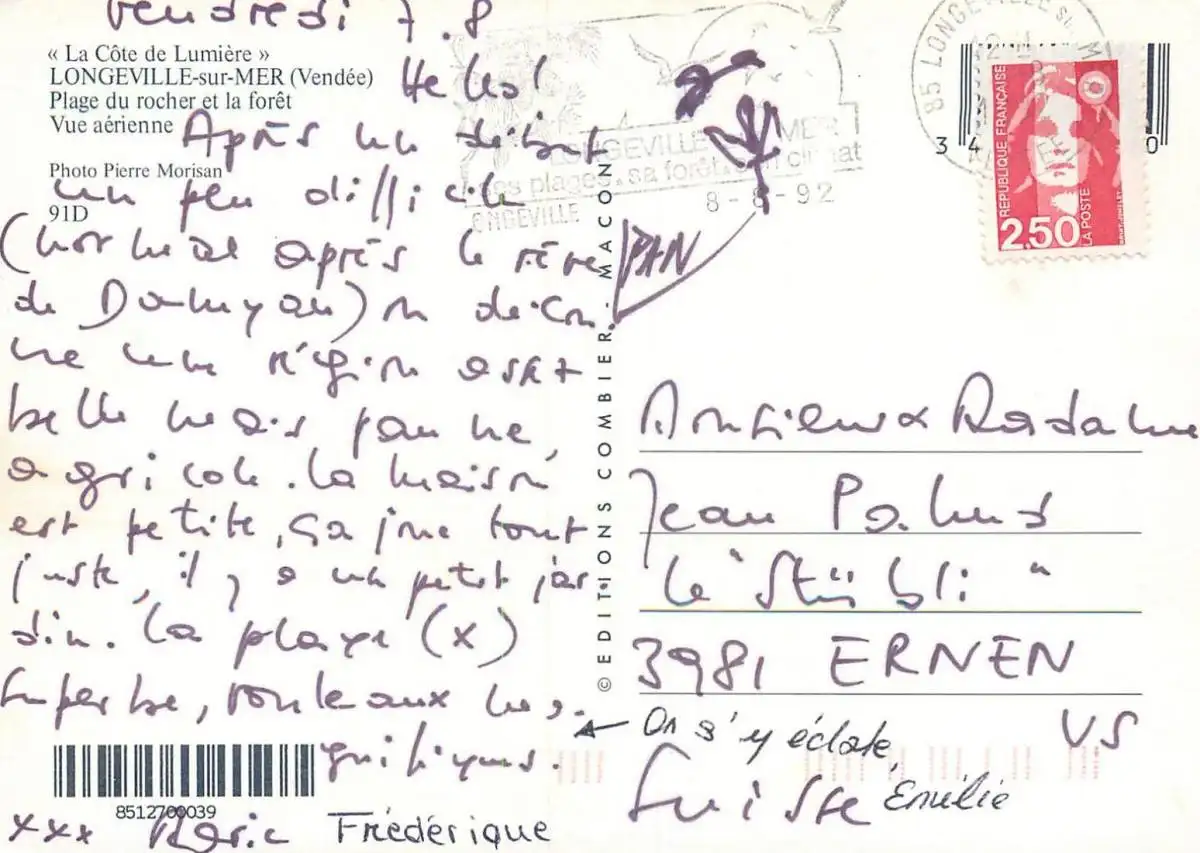 Vendredi 7.8
« La Côte de Lumière »
LONGEVILLE-sur-MER (Vendée)
Plage du rocher et la forêt
Vue aérienne
Photo Pierre Morisan
91D
Hello!
Après un début
un peu difficile
(normal après le rêve
de Daluyan) on décou
vre une région assez
belle mais pauvre,
agricole. La maison
est petite, ça joue tout
juste, il y a un petit jar
din. La plage (x)
superbe, rouleaux ma-
gnifiques.
xxx Marie Frédérique
8512700039
PAN
© EDITIONS COMBIER MACON
85 LONGEVILLE SUR MER
LONGEVILLE MER
ses plages, sa forêt, climat
LONGEVILLE
8-8-92
34 0
REPUBLIQUE FRANÇAISE
2,50
LA POSTE
Monsieur & Madame
Jean
Le "Stübli"
3981 ERNEN
VS
Suisse
On s'y éclate,
Emilie